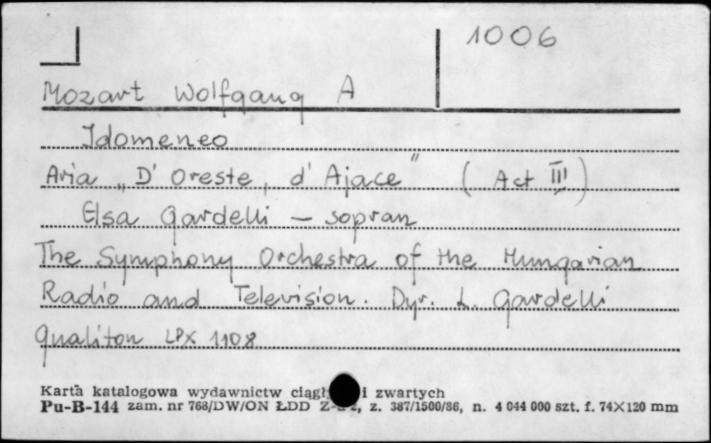 1006
Mozart Wolfgang A
Idomeneo
Aria „D' Oreste, d' Ajace" (Act III)
Elsa Gardelli – sopran
The Symphony Orchestra of the Hungarian
Radio and Television. Dyr. L. Gardelli
Qualiton LPX 1108
Karta katalogowa wydawnictw i zwartych
Pu-B-144 zam. nr 768/DW/ON ŁDD z. 387/1500/86, n. 4 044 000 szt. f. 74X120 mm